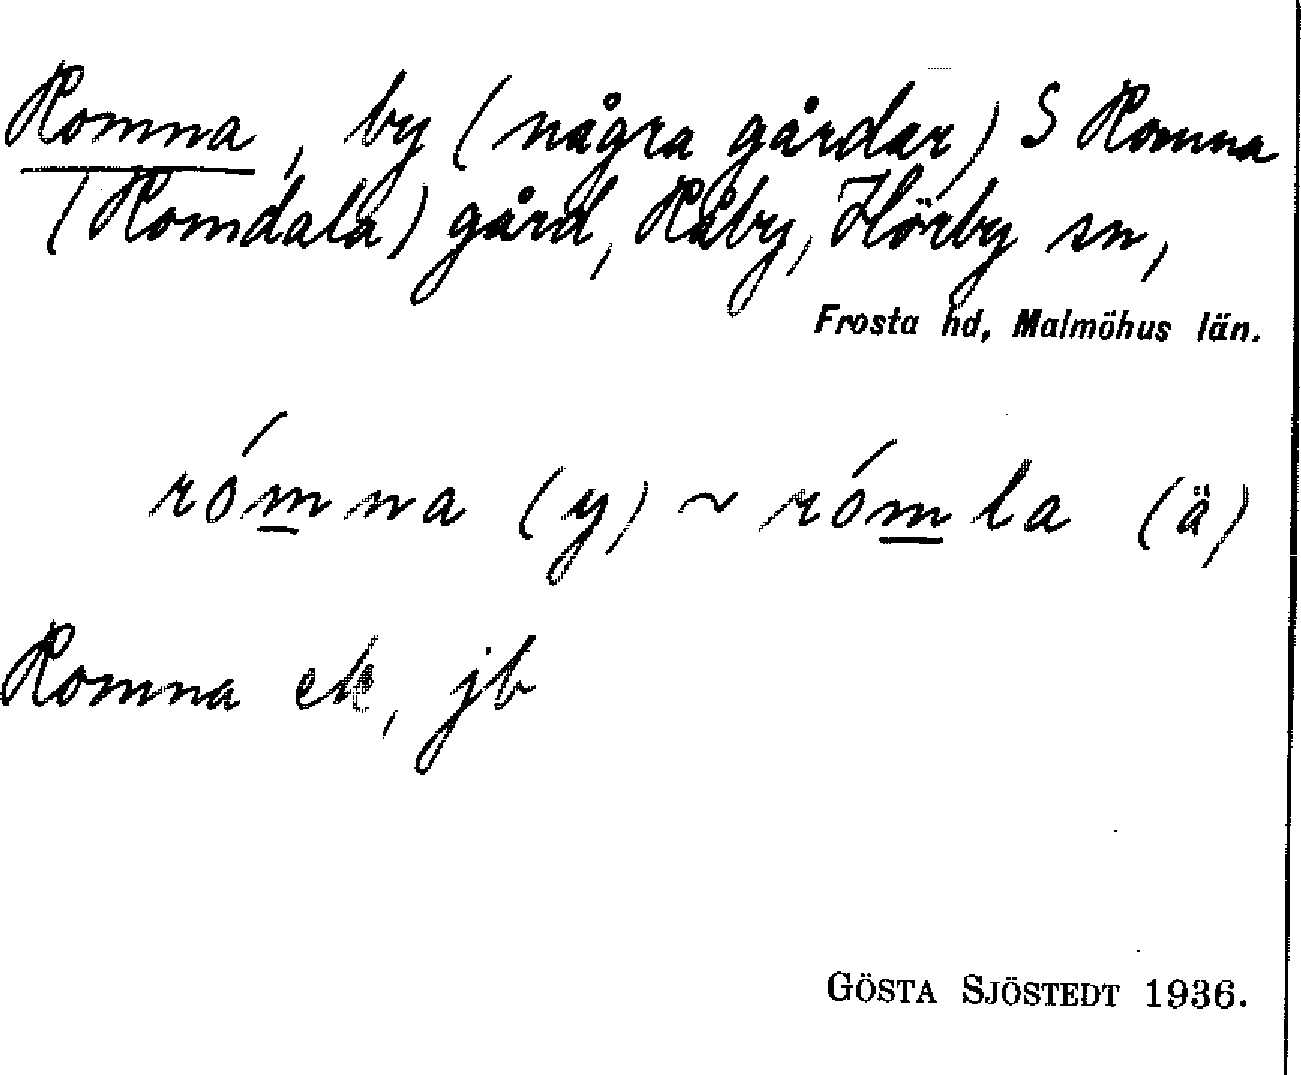 Romna, by (några gårdar) S Romna
(Romdala) gård, Råby, Hörby sn,
Frosta hd, Malmöhus län.
rómna (y) ~ rómla (ä)
Romna ek, jb
GÖSTA SJÖSTEDT 1936.